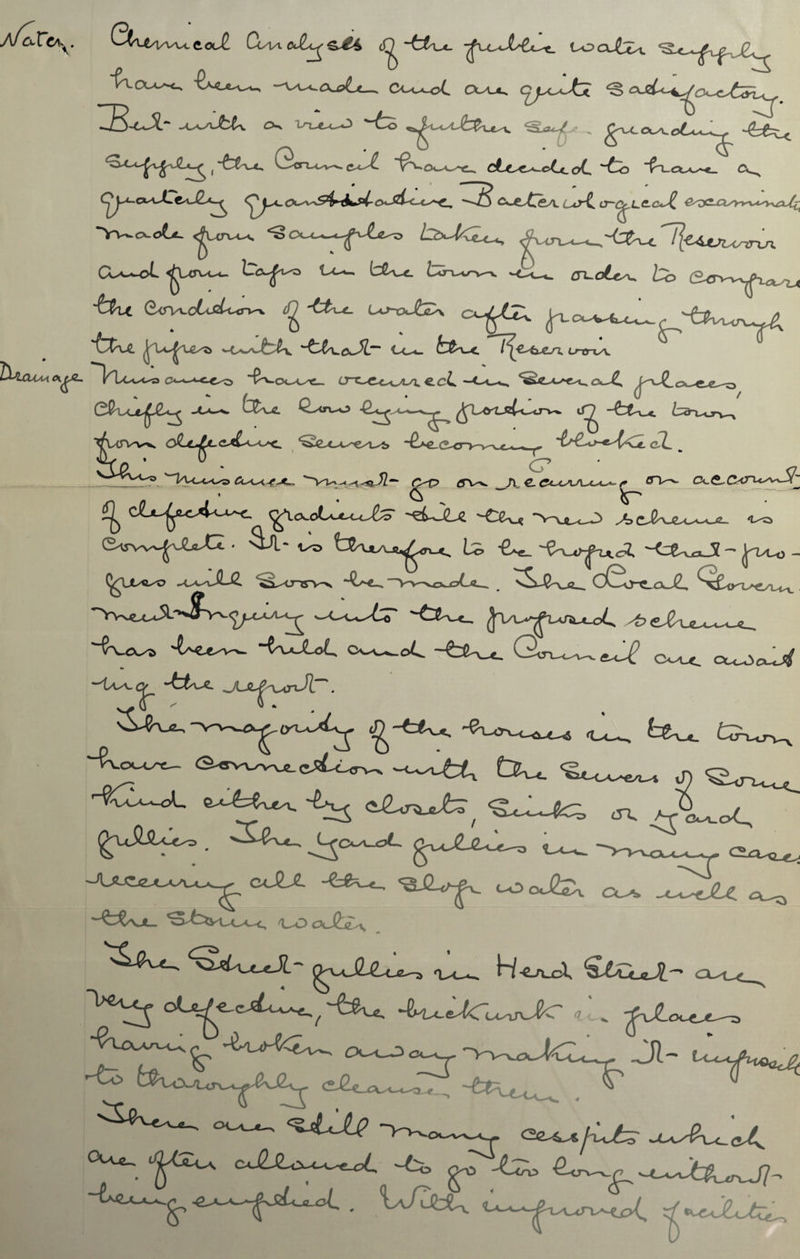 Water. Chemical Analysis of the public water Supply
have been made and are quite Satisfactory.
But with a view to further Safe-guarding the
Supply, the Council have decided to have a
Quarterly Quantitative Bacteriological examination
made from Samples taken from the Reservoir
and from Taps in the town in order to compare
the condition of the water after passing through
the pipes with that in the Reservoir.
Drainage Nuisances have occurred in Several places,
Chiefly in the Cross portion of the town
from defective Sewers becoming blocked.
This Nuisance must go on recurring on account
of defective gradients till the new Scheme is
Complete. It is therefore to be hoped that pro-
gress will Soon be made. The Local Govern-
ment Enquiry into the proposed Scheme
has been held and the Council are await
ing the report.
The majority of the houses in the town
have communication with the Sewers of Some
kind either by closets, Sinks or yard
gullies. The yard gullies in many cases
receiving all the Slop water as well as
the Storm water.
The Street gullies in Herd Street are
very defective, the brickwork in places
having broken away making it impossible
to thoroughly cleanse them.
There are Still many Cess pits which
are often allowed to go too long without
being emptied. With improved facilities